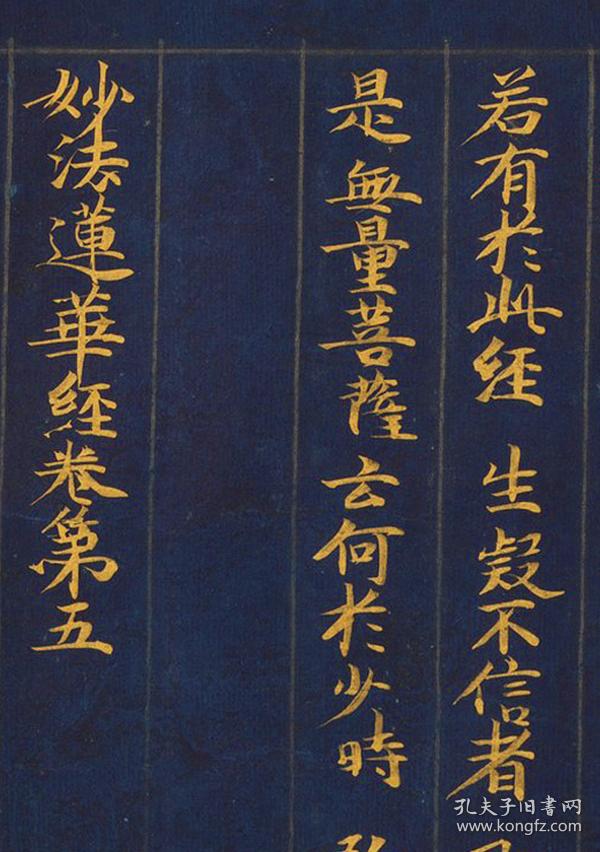 若有於此経 生疑不信者
是無量菩薩 云何於少時
妙法蓮華経卷第五
孔夫子旧書网
www.kongfz.com